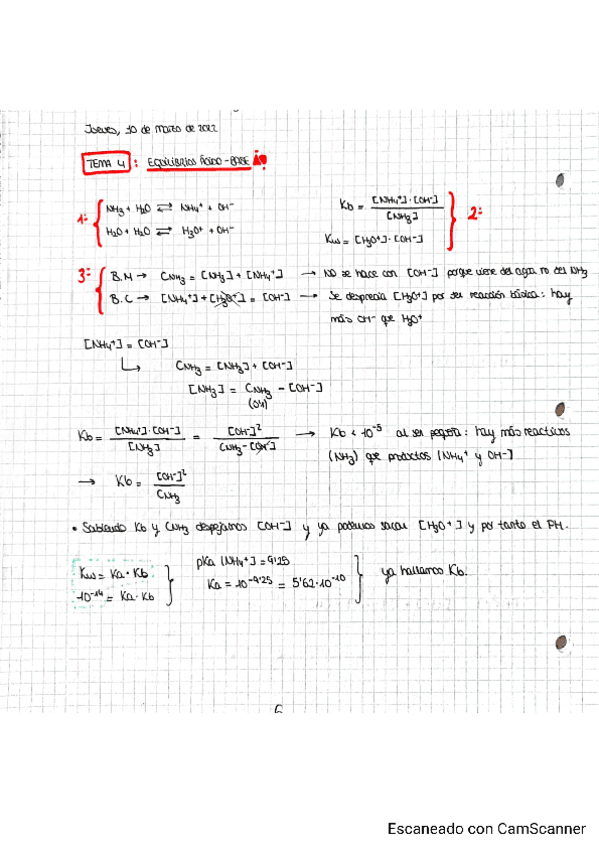 Jueves, 10 de marzo de 2022
TEMA 4 : EQUILIBRIOS ÁCIDO - BASE
1º NH₃ + H₂O ⇄ NH₄⁺ + OH⁻
H₂O + H₂O ⇄ H₃O⁺ + OH⁻
Kb = [NH₄⁺]·[OH⁻] / [NH₃] 2º
Kw = [H₃O⁺]·[OH⁻]
3º B.M → C_NH₃ = [NH₃] + [NH₄⁺] → NO se hace con [OH⁻] porque viene del agua no del NH₃
B.C → [NH₄⁺] + [H₃O⁺] = [OH⁻] → Se desprecia [H₃O⁺] por ser reacción básica: hay
más OH⁻ que H₃O⁺
[NH₄⁺] = [OH⁻]
↳ C_NH₃ = [NH₃] + [OH⁻]
[NH₃] = C_NH₃ - [OH⁻]
Kb = [NH₄⁺]·[OH⁻] / [NH₃] = [OH⁻]² / C_NH₃ - [OH⁻] → Kb < 10⁻⁵ al ser pequeña: hay más reactivos
(NH₃) que productos (NH₄⁺ y OH⁻)
→ Kb = [OH⁻]² / C_NH₃
• Sabiendo Kb y C_NH₃ despejamos [OH⁻] y ya podemos sacar [H₃O⁺] y por tanto el PH.
Kw = Ka · Kb
10⁻¹⁴ = Ka · Kb
pKa (NH₄⁺) = 9'25
Ka = 10⁻⁹'²⁵ = 5'62·10⁻¹⁰
ya hallamos Kb.
Escaneado con CamScanner